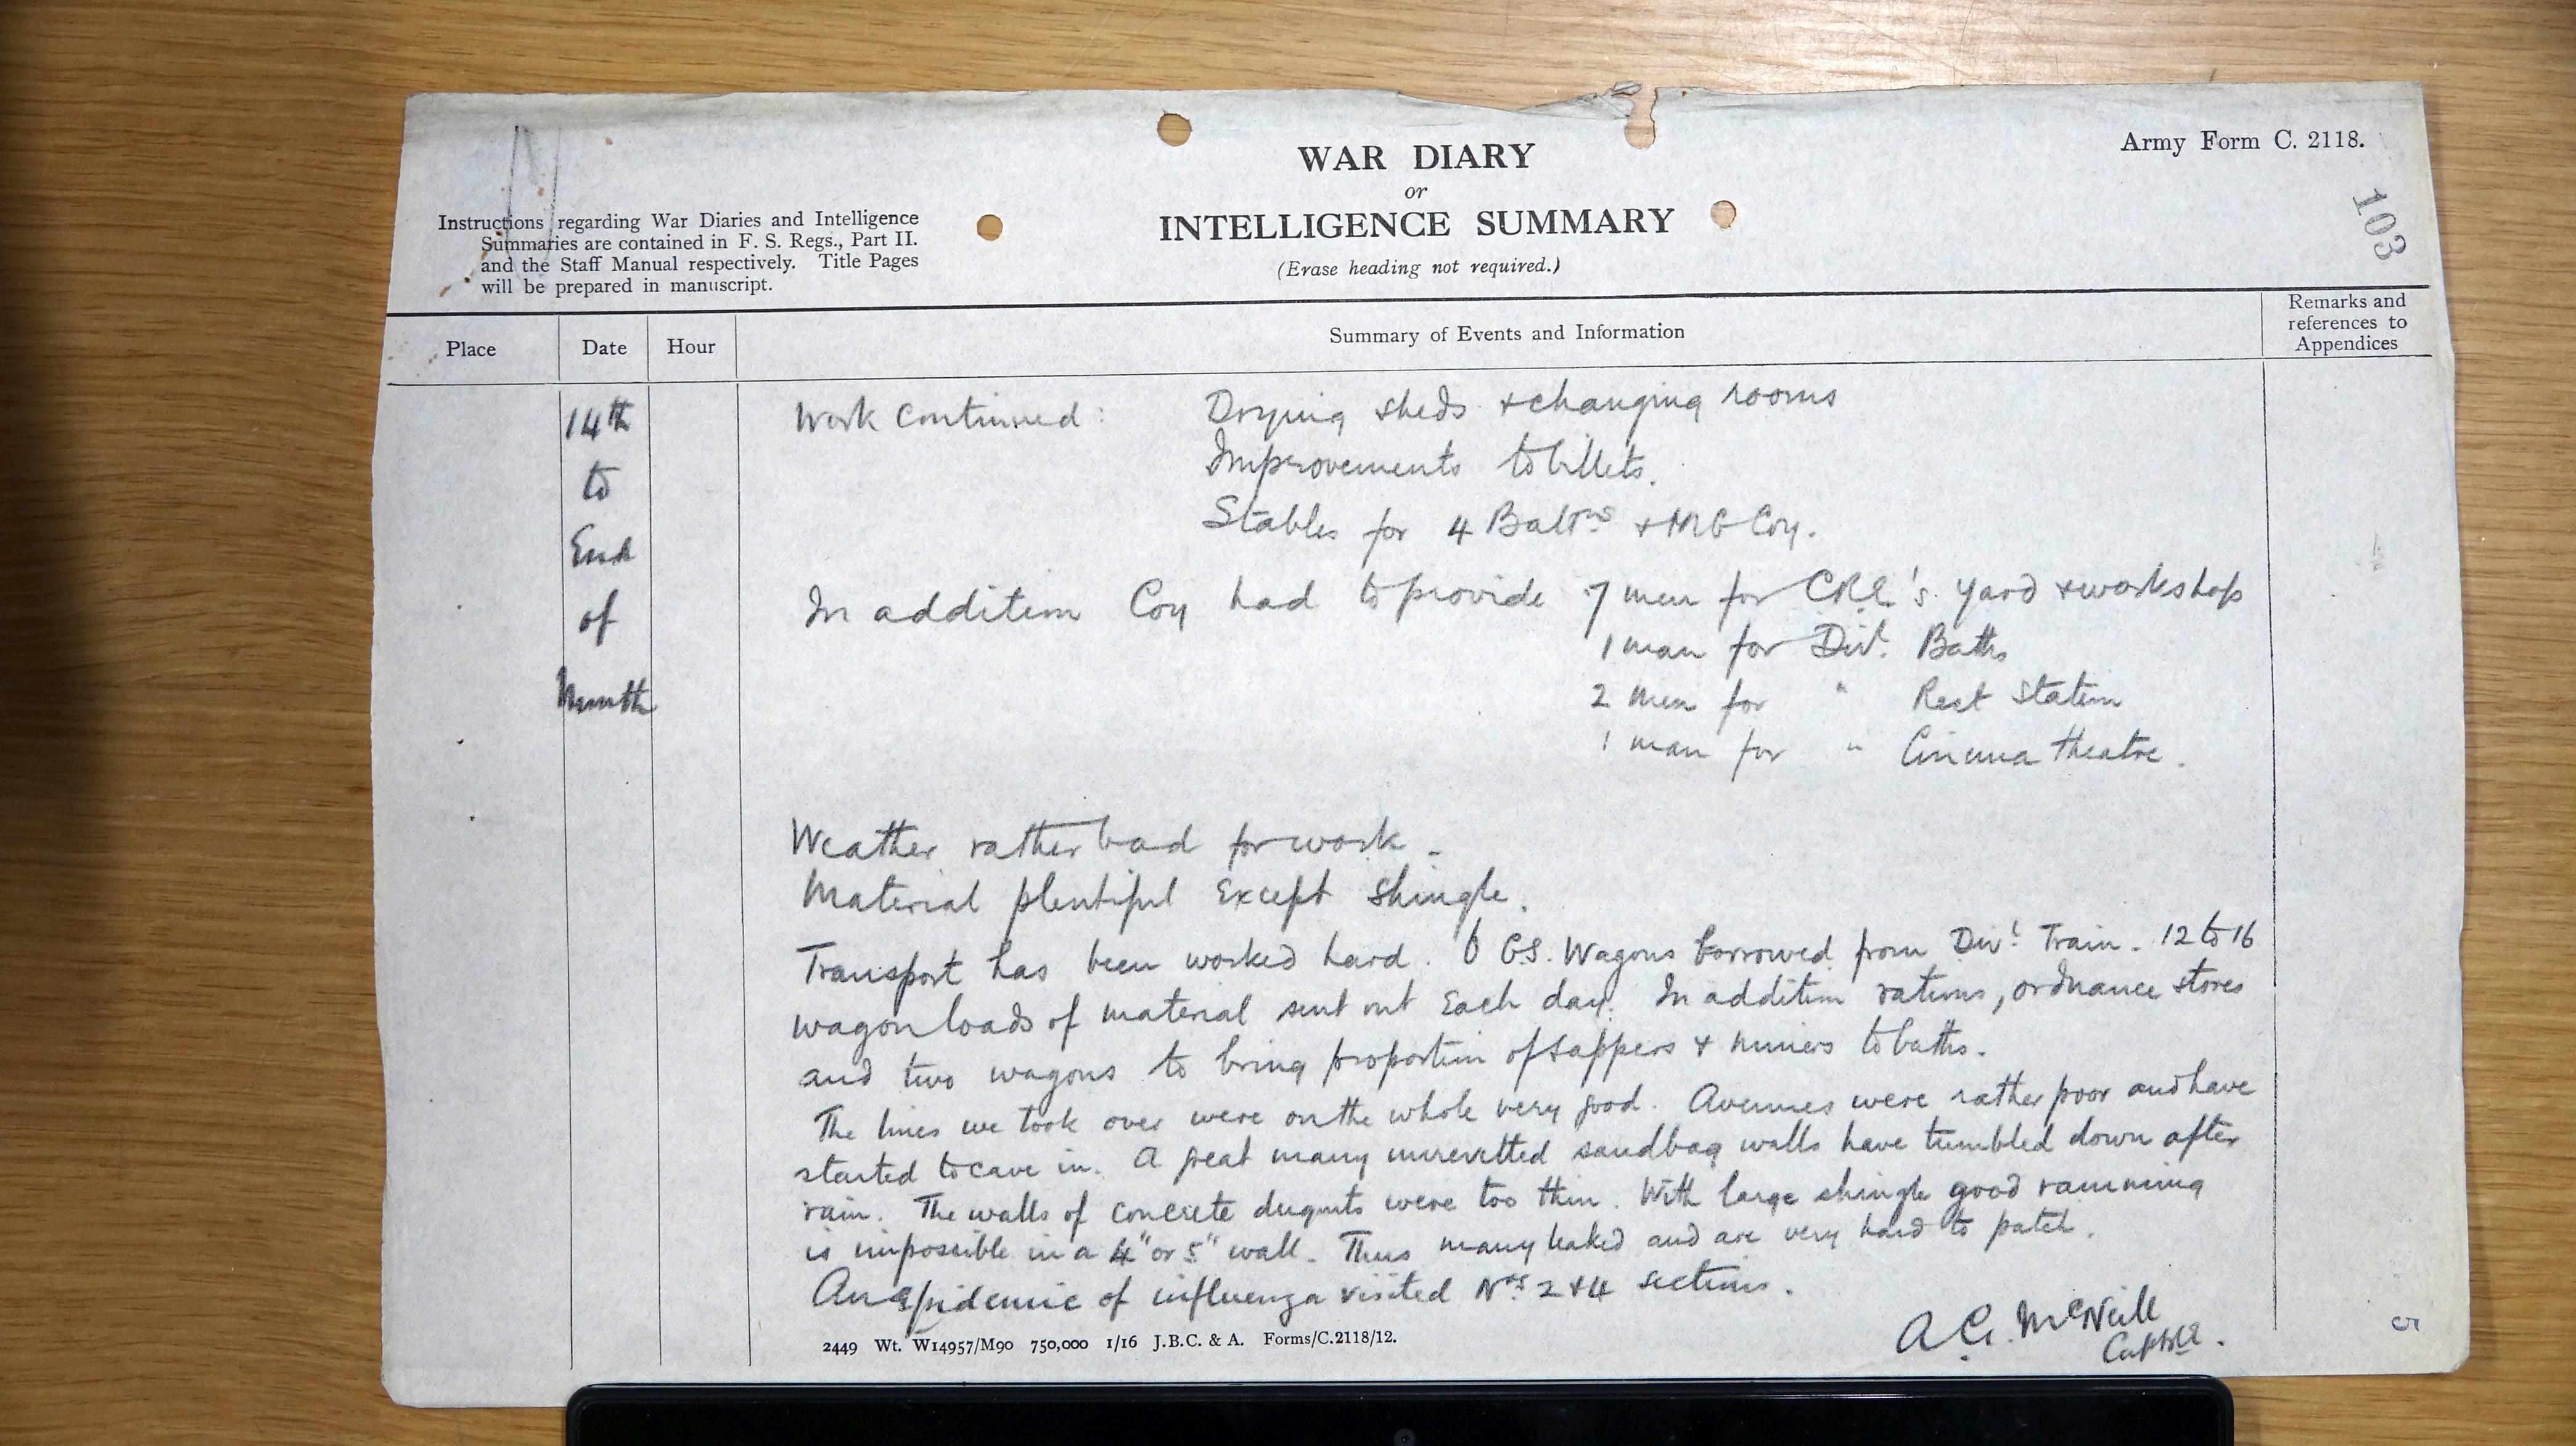 Army Form C. 2118.
103
WAR DIARY
or
INTELLIGENCE SUMMARY
(Erase heading not required.)
Instructions regarding War Diaries and Intelligence
Summaries are contained in F. S. Regs., Part II.
and the Staff Manual respectively. Title Pages
will be prepared in manuscript.
Place
Date
Hour
Summary of Events and Information
Remarks and
references to
Appendices
14th
to
End
of
Month
Work Continued: Drying sheds + changing rooms
Improvements to billets.
Stables for 4 Battns + MG Coy.
In addition Coy had to provide 7 men for CRE's yard + workshops
1 man for Div. Baths
2 men for " Rest Station
1 man for " Cinema theatre.
Weather rather bad for work.
Material plentiful Except Shingle.
Transport has been worked hard. 6 GS. Wagons borrowed from Divl Train. 12 to 16
wagon loads of material sent out Each day. In addition rations, ordnance stores
and two wagons to bring proportion of sappers + miners to baths.
The lines we took over were on the whole very good. Avenues were rather poor and have
started to cave in. A great many unrevetted sandbag walls have tumbled down after
rain. The walls of concrete dugouts were too thin. With large shingle good ramming
is impossible in a 4" or 5" wall. Thus many leaked and are very hard to patch.
An Epidemic of influenza visited Nos 2 + 4 sections.
A.G. McNeill
Capt RE.
2449 Wt. W14957/M90 750,000 1/16 J.B.C. & A. Forms/C.2118/12.